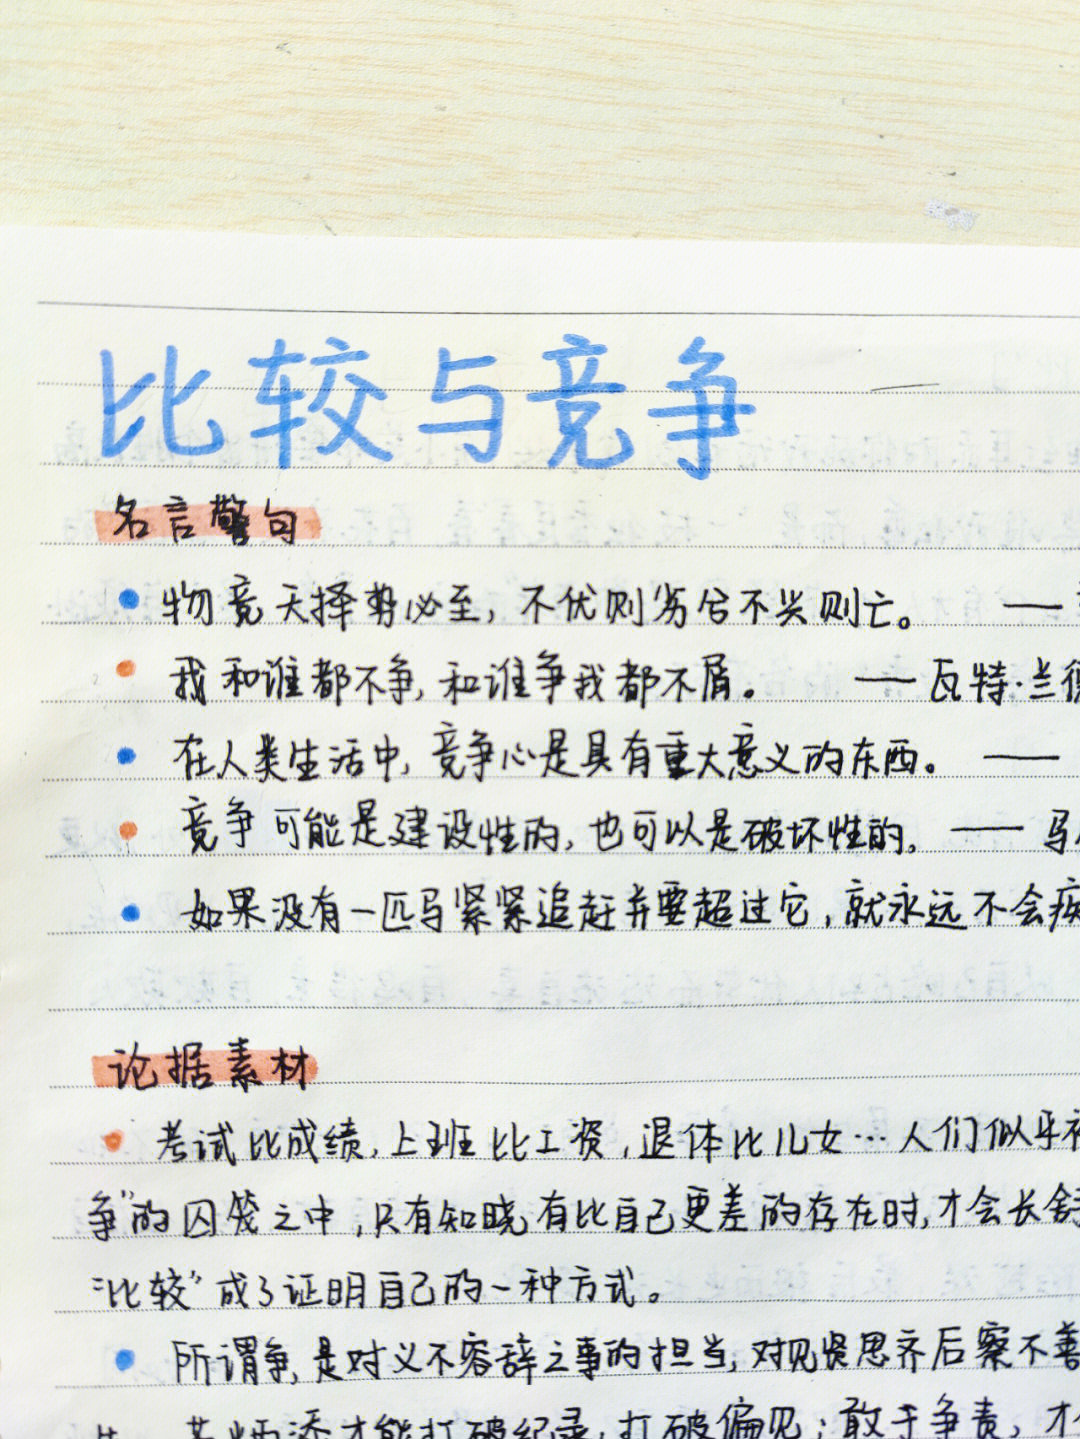 比较与竞争
名言警句
物竞天择势必至，不优则劣兮不兴则亡。 ——
我和谁都不争，和谁争我都不屑。 ——瓦特·兰德
在人类生活中，竞争心是具有重大意义的东西。 ——
竞争可能是建设性的，也可以是破坏性的。 ——马
如果没有一匹马紧紧追赶并要超过它，就永远不会疾
论据素材
考试比成绩，上班比工资，退休比儿女…人们似乎被
争”的囚笼之中，只有知晓有比自己更差的存在时，才会长舒
“比较”成了证明自己的一种方式。
所谓争，是对义不容辞之事的担当，对见贤思齐后察不善
才能打破纪录，打破偏见；敢于争责，才